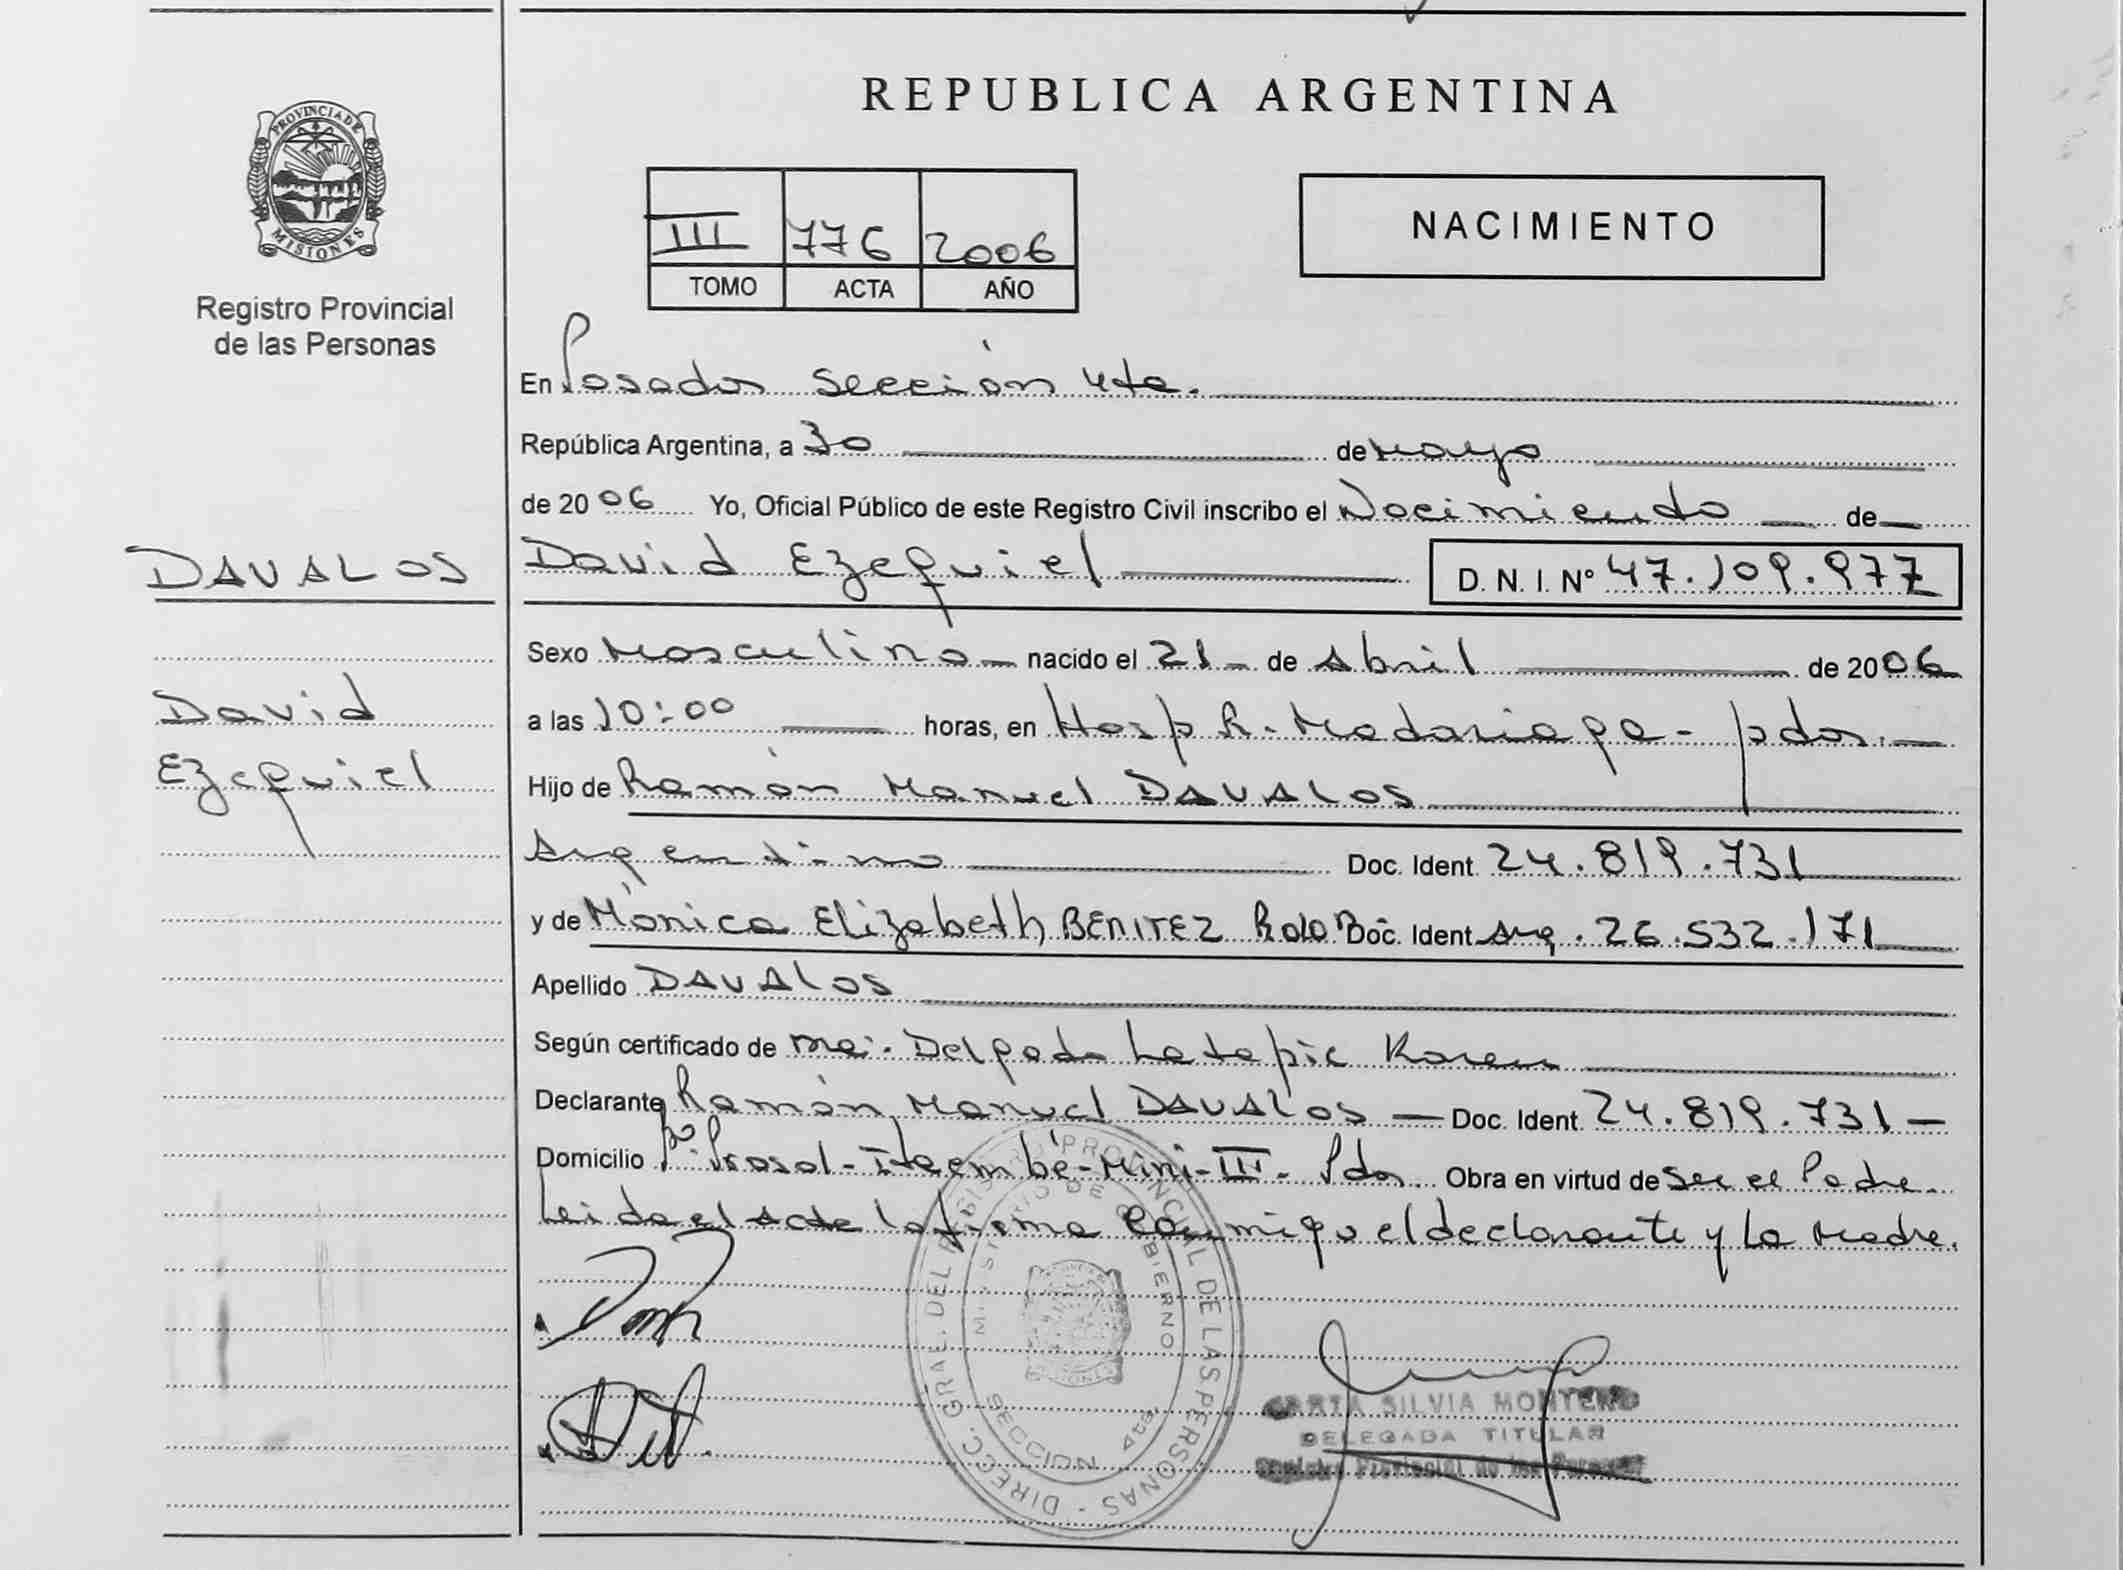 REPUBLICA ARGENTINA
PROVINCIA DE
MISIONES
Registro Provincial
de las Personas
III 776 2006
TOMO ACTA AÑO
NACIMIENTO
En Posadas Sección 4ta.
República Argentina, a 30 de Mayo
de 2006 Yo, Oficial Público de este Registro Civil inscribo el Nacimiento de
DAVALOS
David Ezequiel D.N.I. Nº 47.109.977
Sexo Masculino nacido el 21 de Abril de 2006
David
Ezequiel
a las 10:00 horas, en Hosp R. Madariaga - pdas.
Hijo de Ramón Manuel DAVALOS
Argentino Doc. Ident. 24.819.731
y de Mónica Elizabeth BENITEZ Doc. Ident. Arg. 26.532.171
Apellido DAVALOS
Según certificado de Delgado Karen
Declarante Ramón Manuel DAVALOS - Doc. Ident. 24.819.731 -
Domicilio Itaembé-Miní-III- Pdas. Obra en virtud de ser el Padre.
Leida el Acta la firma conmigo el declarante y la Madre.
DIRECC. GRAL. DEL REGISTRO PROVINCIAL DE LAS PERSONAS
MINISTERIO DE GOBIERNO
SECCION 4ta.
SILVIA MONTERO
DELEGADA TITULAR
Registro Provincial de las Personas